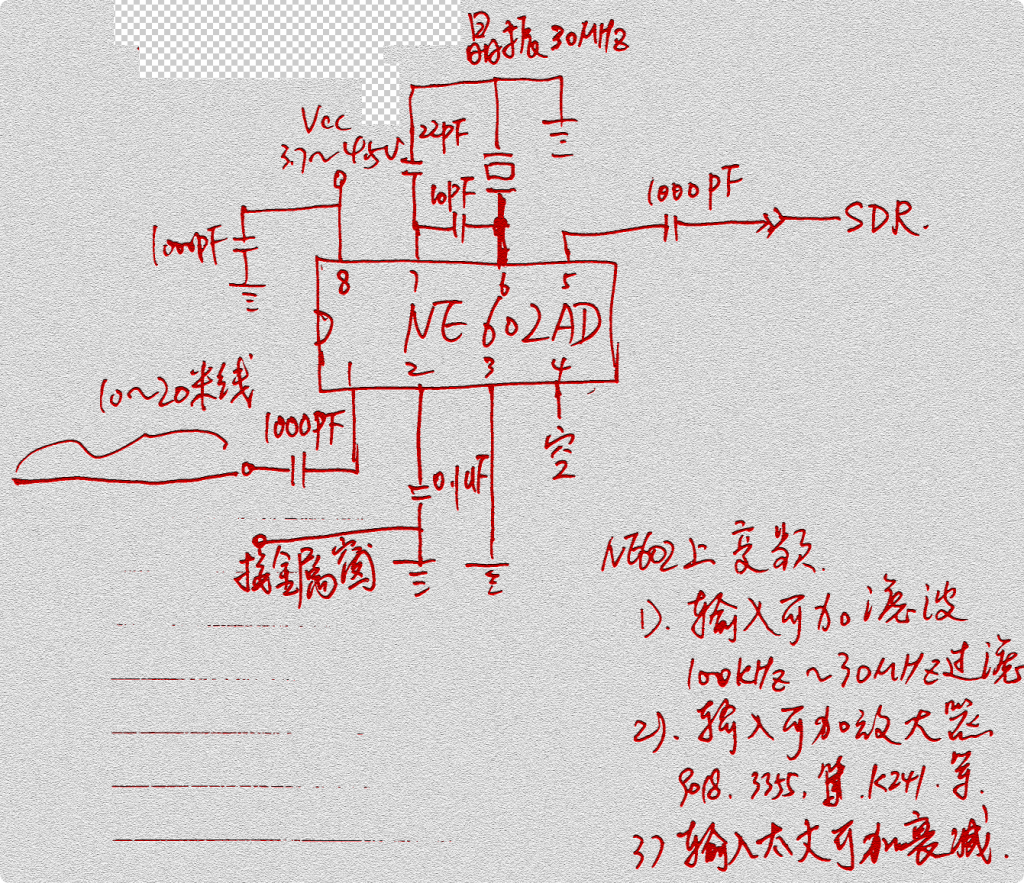 晶振 30MHz
Vcc
3.7~4.5V
22PF
10PF
1000PF
SDR.
1000PF
8 7 6 5
NE602AD
1 2 3 4
10~20米线
1000PF
空
0.1uF
接金属窗
NE602上变频.
1). 输入可加滤波
100kHz~30MHz过滤
2). 输入可加放大器
9018. 3355. 管. K241. 等.
3) 输入太大可加衰减.